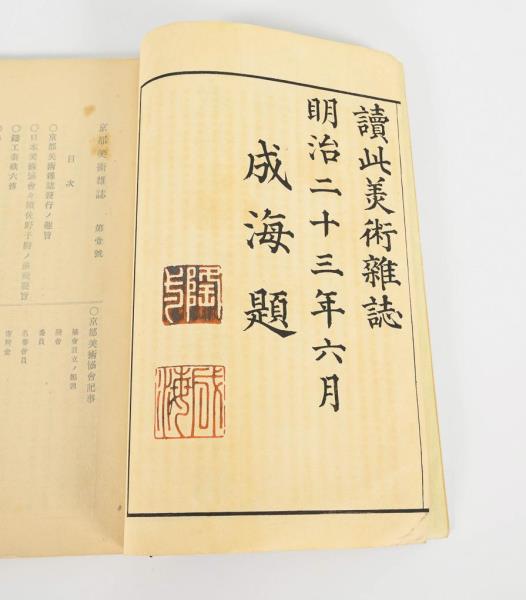 讀此美術雜誌
明治二十三年六月
成海題
成海
京都美術雜誌 第壹號
目次
○京都美術雜誌發行ノ趣旨
○日本美術協會々頭佐野子爵ノ演說要旨
○京都美術協會記事
委員
名譽會員
寄附金